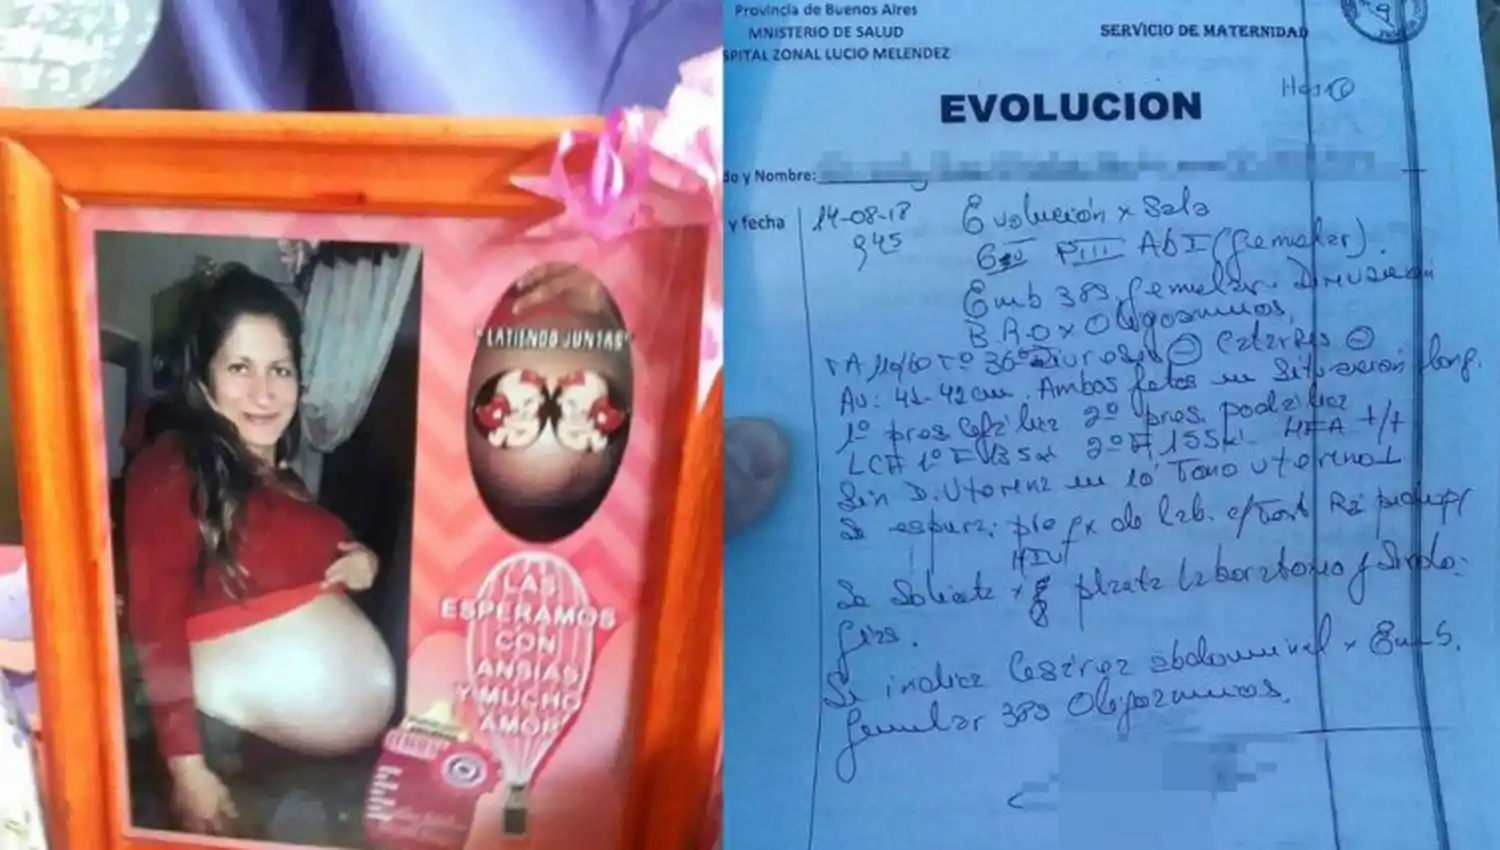 "LATIENDO JUNTAS"
LAS
ESPERAMOS
CON
ANSIAS
Y MUCHO
AMOR
Provincia de Buenos Aires
MNISTERIO DE SALUD
SPITAL ZONAL LUCIO MELENDEZ
SERVICIO DE MATERNIDAD
EVOLUCION
do y Nombre:
y fecha
14-08-18
945
Evolución x Sala
PIII AbI (Gemelar).
Emb 38s Gemelar.
B.R.O x Oligoamnios,
TA 110/60 Tº 36º Diuresis ⊖ Catarsis ⊖
AU: 41-42cm. Ambos fetos en Situación long.
1º pres Cefálica 2º pres. podálica
LCF 1º 2º 155 MFA +/+
Sin D. Uterina Tono uterino
Se espera: de lab.
HIV
Se Solicita x laboratorio y Serolo-
gías.
Se indica Cesárea abdominal x Emb.
Gemelar 38s Oligoamnios.